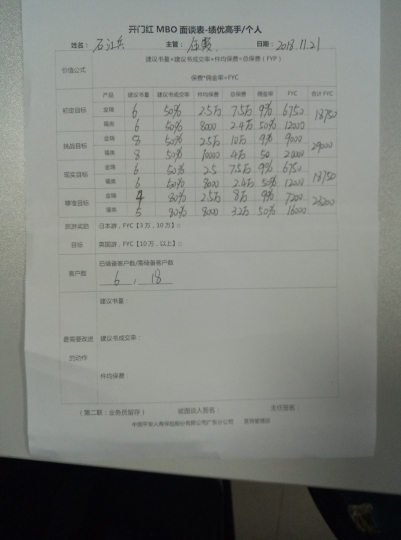 开门红 MBO 面谈表-绩优高手/个人
姓名： 主管： 日期：2018.11.21
价值公式
建议书量*建议书成交率*件均保费=总保费（FYP）
保费*佣金率=FYC
产品 建议书量 建议书成交率 件均保费 总保费 佣金率 FYC 合计 FYC
初定目标 金瑞 6 50% 2.5万 7.5万 9% 6750 18750
福类 6 50% 8000 2.4万 50% 12000
挑战目标 金瑞 8 50% 2.5万 10万 9% 9000 29000
福类 8 50% 10000 4万 50 20000
现实目标 金瑞 6 50% 2.5 7.5万 9% 6750 18750
福类 6 50% 8000 2.4万 50% 12000
金瑞 4 80% 2.5万 8万 9% 7200 23200
福类 5 80% 8000 3.2万 50% 16000
旅游奖励 日本游，FYC【3万，10万）□
目标 英国游，FYC【10万，以上）□
客户数
已储备客户数/需储备客户数
6，18
建议书量：
最需要改进 建议书成交率：
的动作
件均保费：
（第二联：业务员留存） 被面谈人签名： 主任签名：
中国平安人寿保险股份有限公司广东分公司